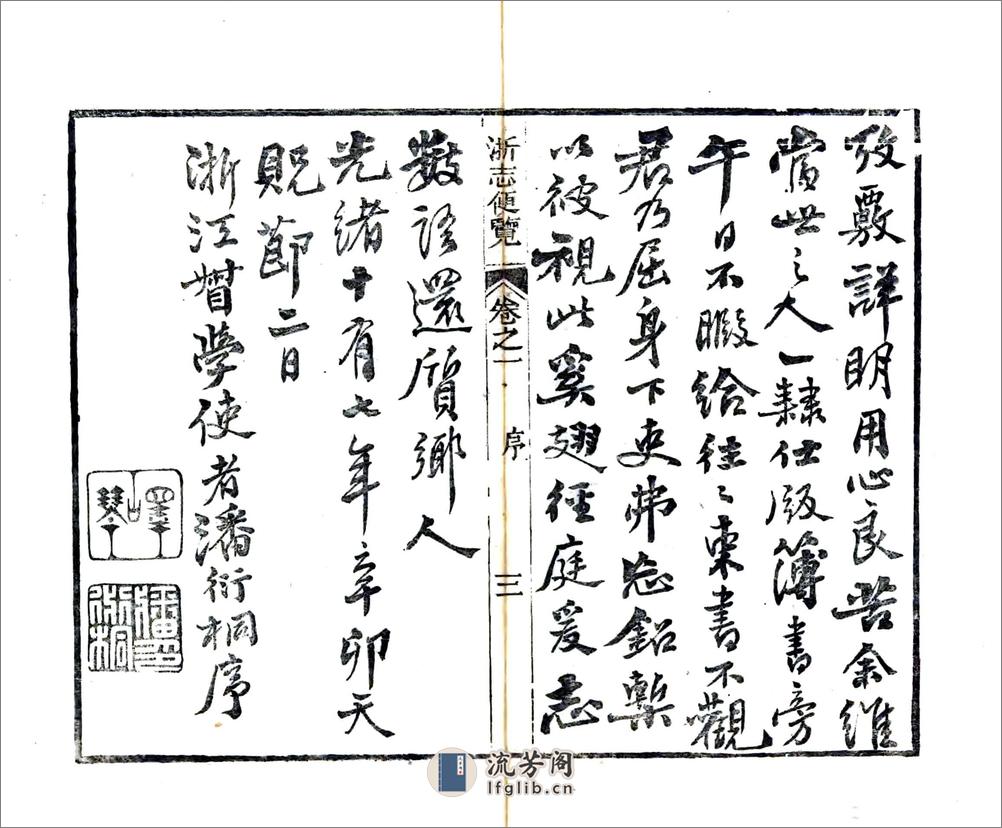 攷覈詳明用心良苦余維
當世之大一隸仕版簿書旁
午日不暇給往〻束書不觀
君乃屈身下吏弗忘鉛槧
以彼視此奚翅徑庭爰志
浙志便覽 卷之一 序 三
數語還質鄉人
光緒十有七年辛卯天
貺節二日
浙江督學使者潘衍桐序
嶧琴
潘衍桐
流芳阁
lfglib.cn